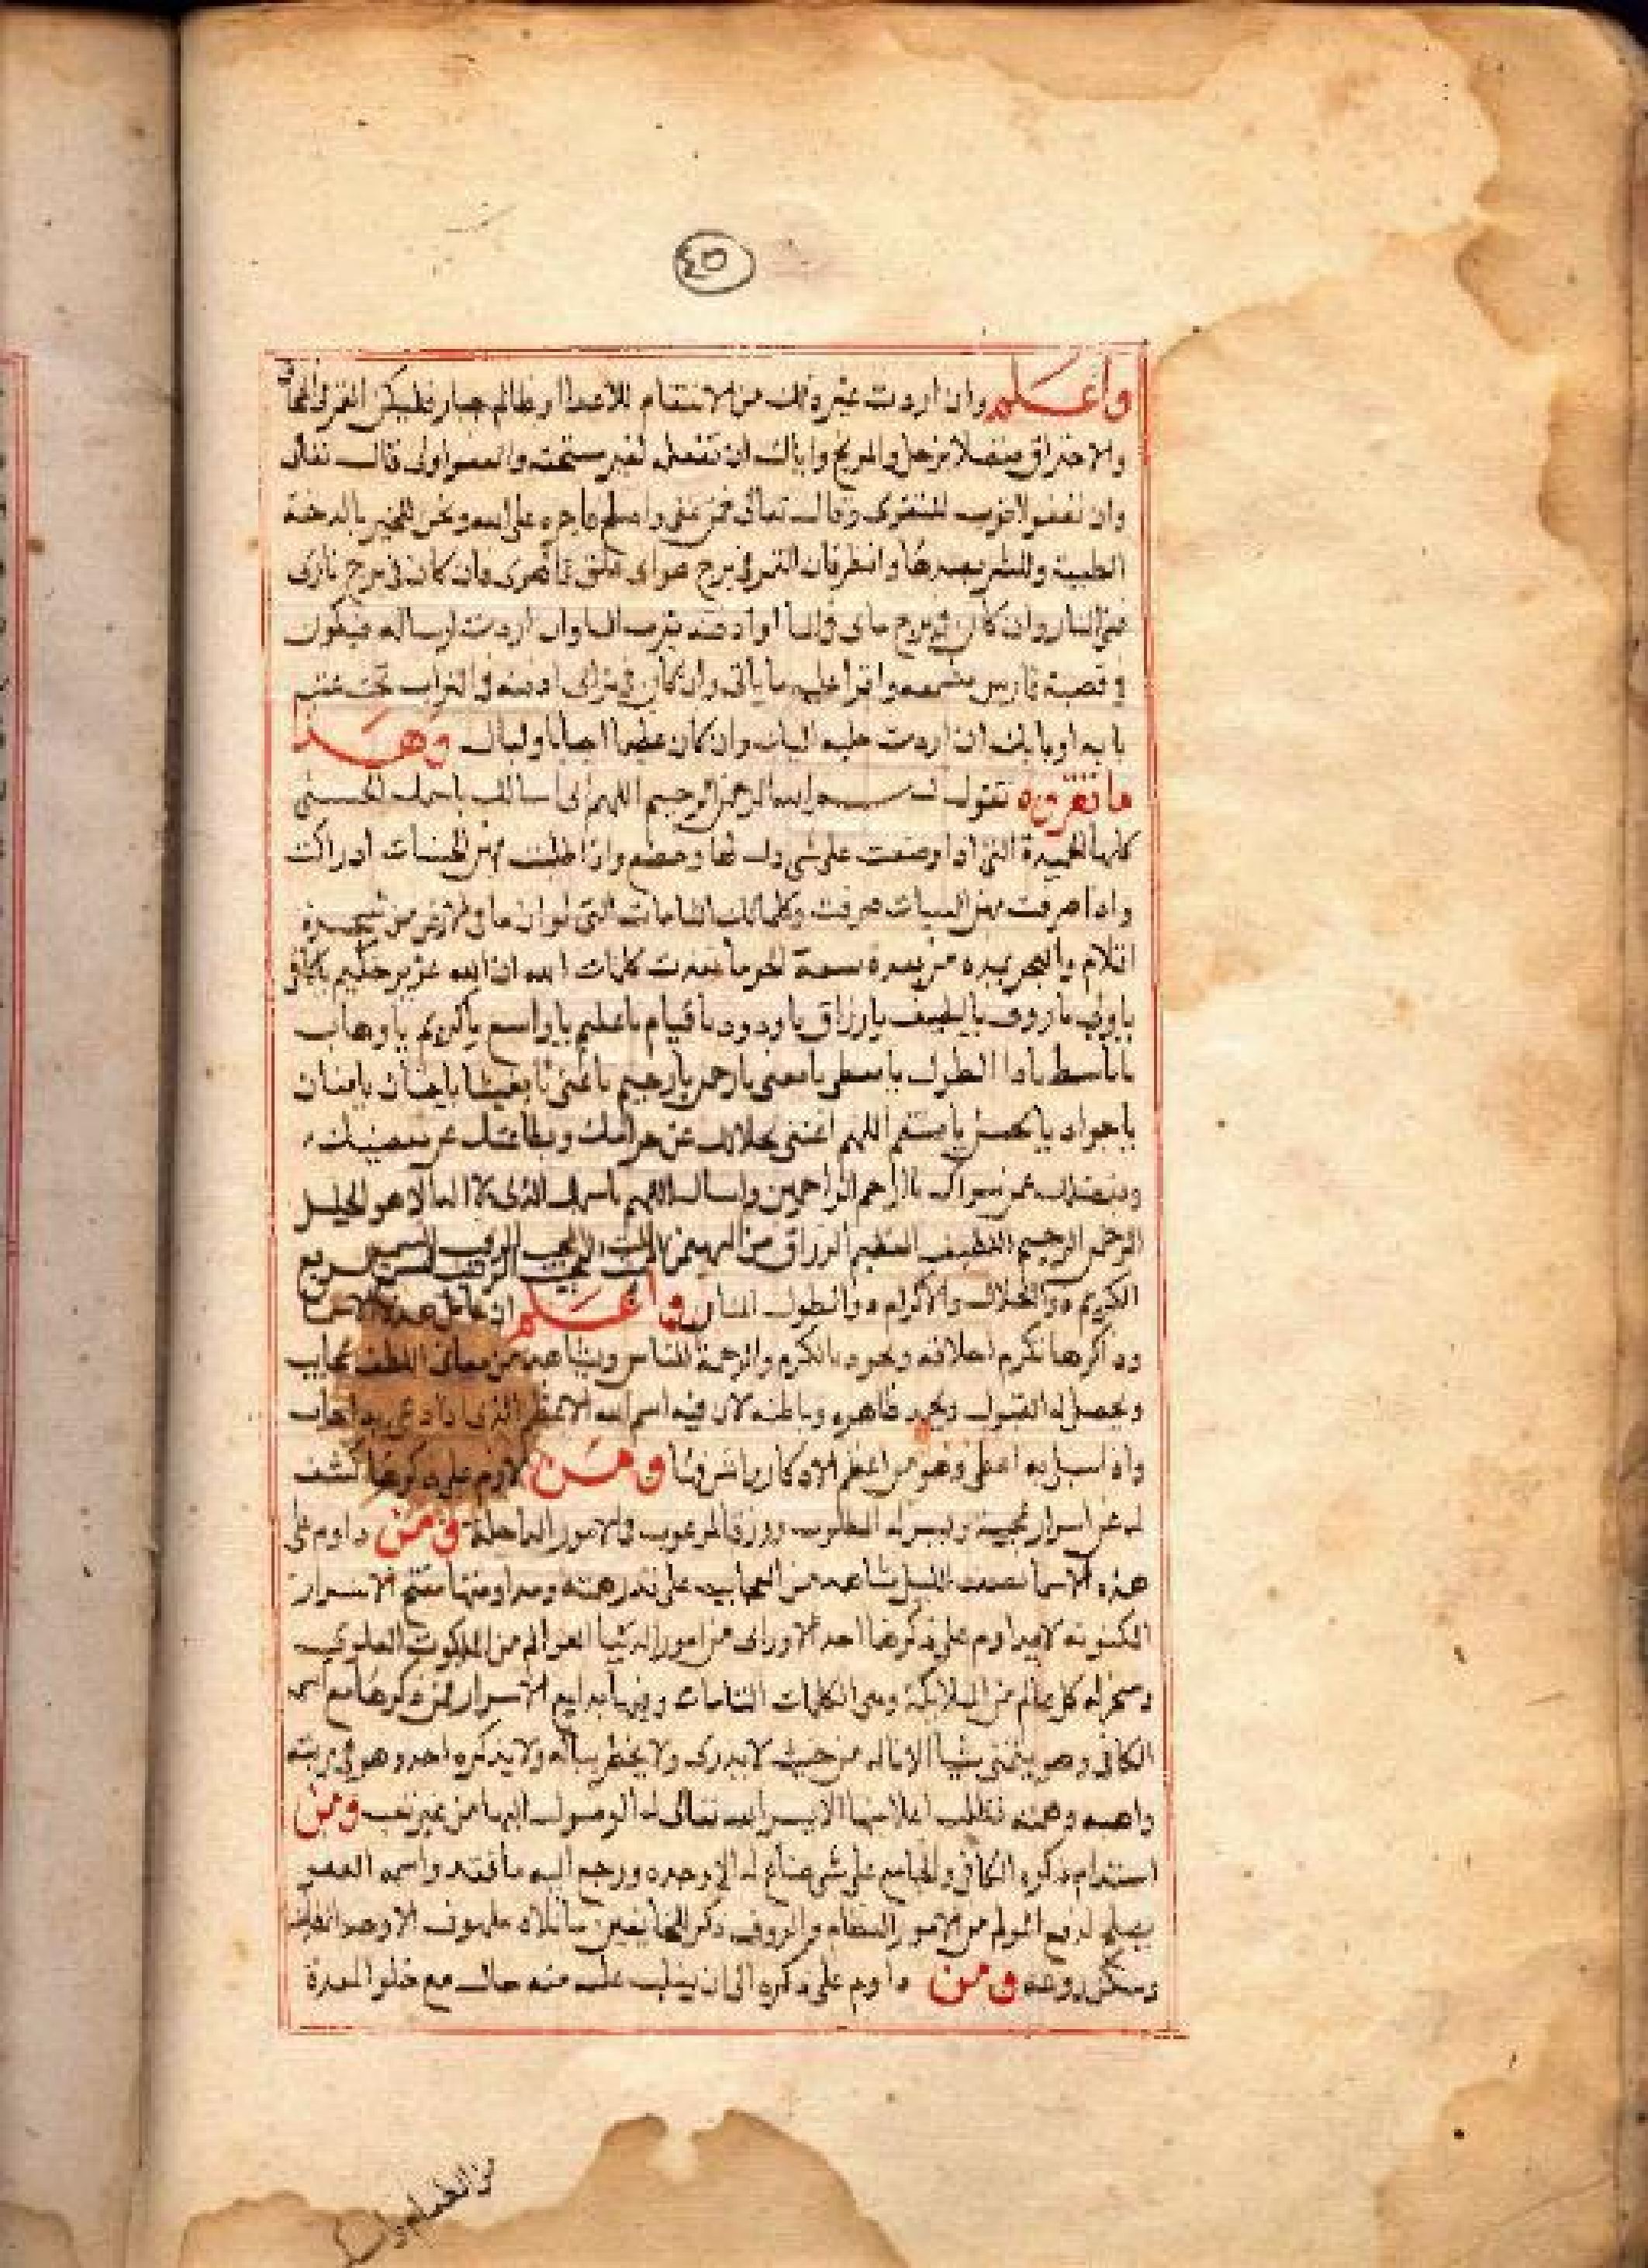 ٤٥
واعلم وان اردت غير ذلك من الانتقام للاعدا او ظالم جبار فليكن القمر في المحاق
والاحتراق متصلا بزحل والمريخ واياك ان تفعل لغير مستحقه والعفو اولى قال تعالى
وان تعفوا اقرب للتقوى وقال تعالى فمن عفى واصلح فاجره على الله وبخر للخير بالدخنة
الطيبة وللشر بضدها وانظر فان القمر في برج هواى فى الهوى وان كان في برج نارى
ففي النار وان كان في برج ماى في الما او ادفنه بقرب الما وان اردت ارساله فيكون
في قصبة فارسي واقرا عليه ما ياتى وان كان في ترابى ادفنه في التراب تحت عتبة
بابه او بابك ان اردت جلبه اليك وان كان وهذا
ما تقروه تقول بسم الله الرحمن الرحيم اللهم انى اسالك باسمايك الحسنى
كلها الحميدة التى اذا وضعت على شى ذل لها وخضع واذا طلبت بهن الحسنات ادركت
واذا صرفت بهن السيات صرفت وكلماتك التامات التى لو ان ما في الارض من شجرة
اقلام والبحر يمده من بعده سبعة ابحر ما نفدت كلمات الله ان الله عزيز حكيم يا كافى
يا ولي يا روف يا لطيف يا رزاق يا ودود يا قيام يا عليم يا واسع يا كريم يا وهاب
يا باسط يا ذا الطول يا معطى يا مغنى يا رحمن يا رحيم يا غنى يا مغيث يا حنان يا منان
يا جواد يا محسن يا منتقم اللهم اغننى بحلالك عن حرامك وبطاعتك عن معصيتك
وبفضلك عمن سواك يا ارحم الراحمين واسالك اللهم باسمك الذى لا اله الا هو الجليل
الرحمن الرحيم اللطيف العظيم الرزاق المجيب الرقيب السريع
الكريم ذو الجلال والاكرام ذو الطول المنان واعلم ان حامل هذه الاسما
وذاكرها تكرم اخلاقه ويجود بالكرم والرحمة للناس ويشاهد من معانى اللطف عجايب
ويحصل له القبول ظاهره وباطنه لان فيه اسم الله الاعظم الذى اذا دعى به اجاب
واذا سيل به اعطى وهو من اعظم الاذكار واشرفها ومن لازم على ذكرها كشف
له عن اسرار عجيبة ويسر له المطلوب ورزق المرغوب في الامور ومن داوم على
هذه الاسما نصف الليل شاهد من العجايب على قدر همته ومداومتها مفتح الاسرار
المكنونه لا يداوم على ذكرها احد الا وراى من امور الدنيا العوالم من الملكوت العلوى
وسخر له كل عالم من الملايكة وهى الكلمات التامات وفيها بدايع الاسرار فمن ذكرها مع اسمه
الكافى وهو يتمنى شيا الا ناله من حيث لا يدرى ولا يخطر بباله ولا يذكره احد وهو في مرتبته
وهمته تطلب اعلا منها الا يسر الله تعالى له الوصول اليها من غير تعب ومن
استدام ذكره الكافى والجامع على شى ضاع له الا وجده ورجع اليه ما فقده واسمه العفو
يصلح لدفع المولم من الامور العظام والروف ذكر للخايفين ما تلاه ملهوف الا وجد اللطف
وسكن روعه ومن داوم على ذكره الى ان يغلب عليه منه حال مع خلو المعدة
من الطعام